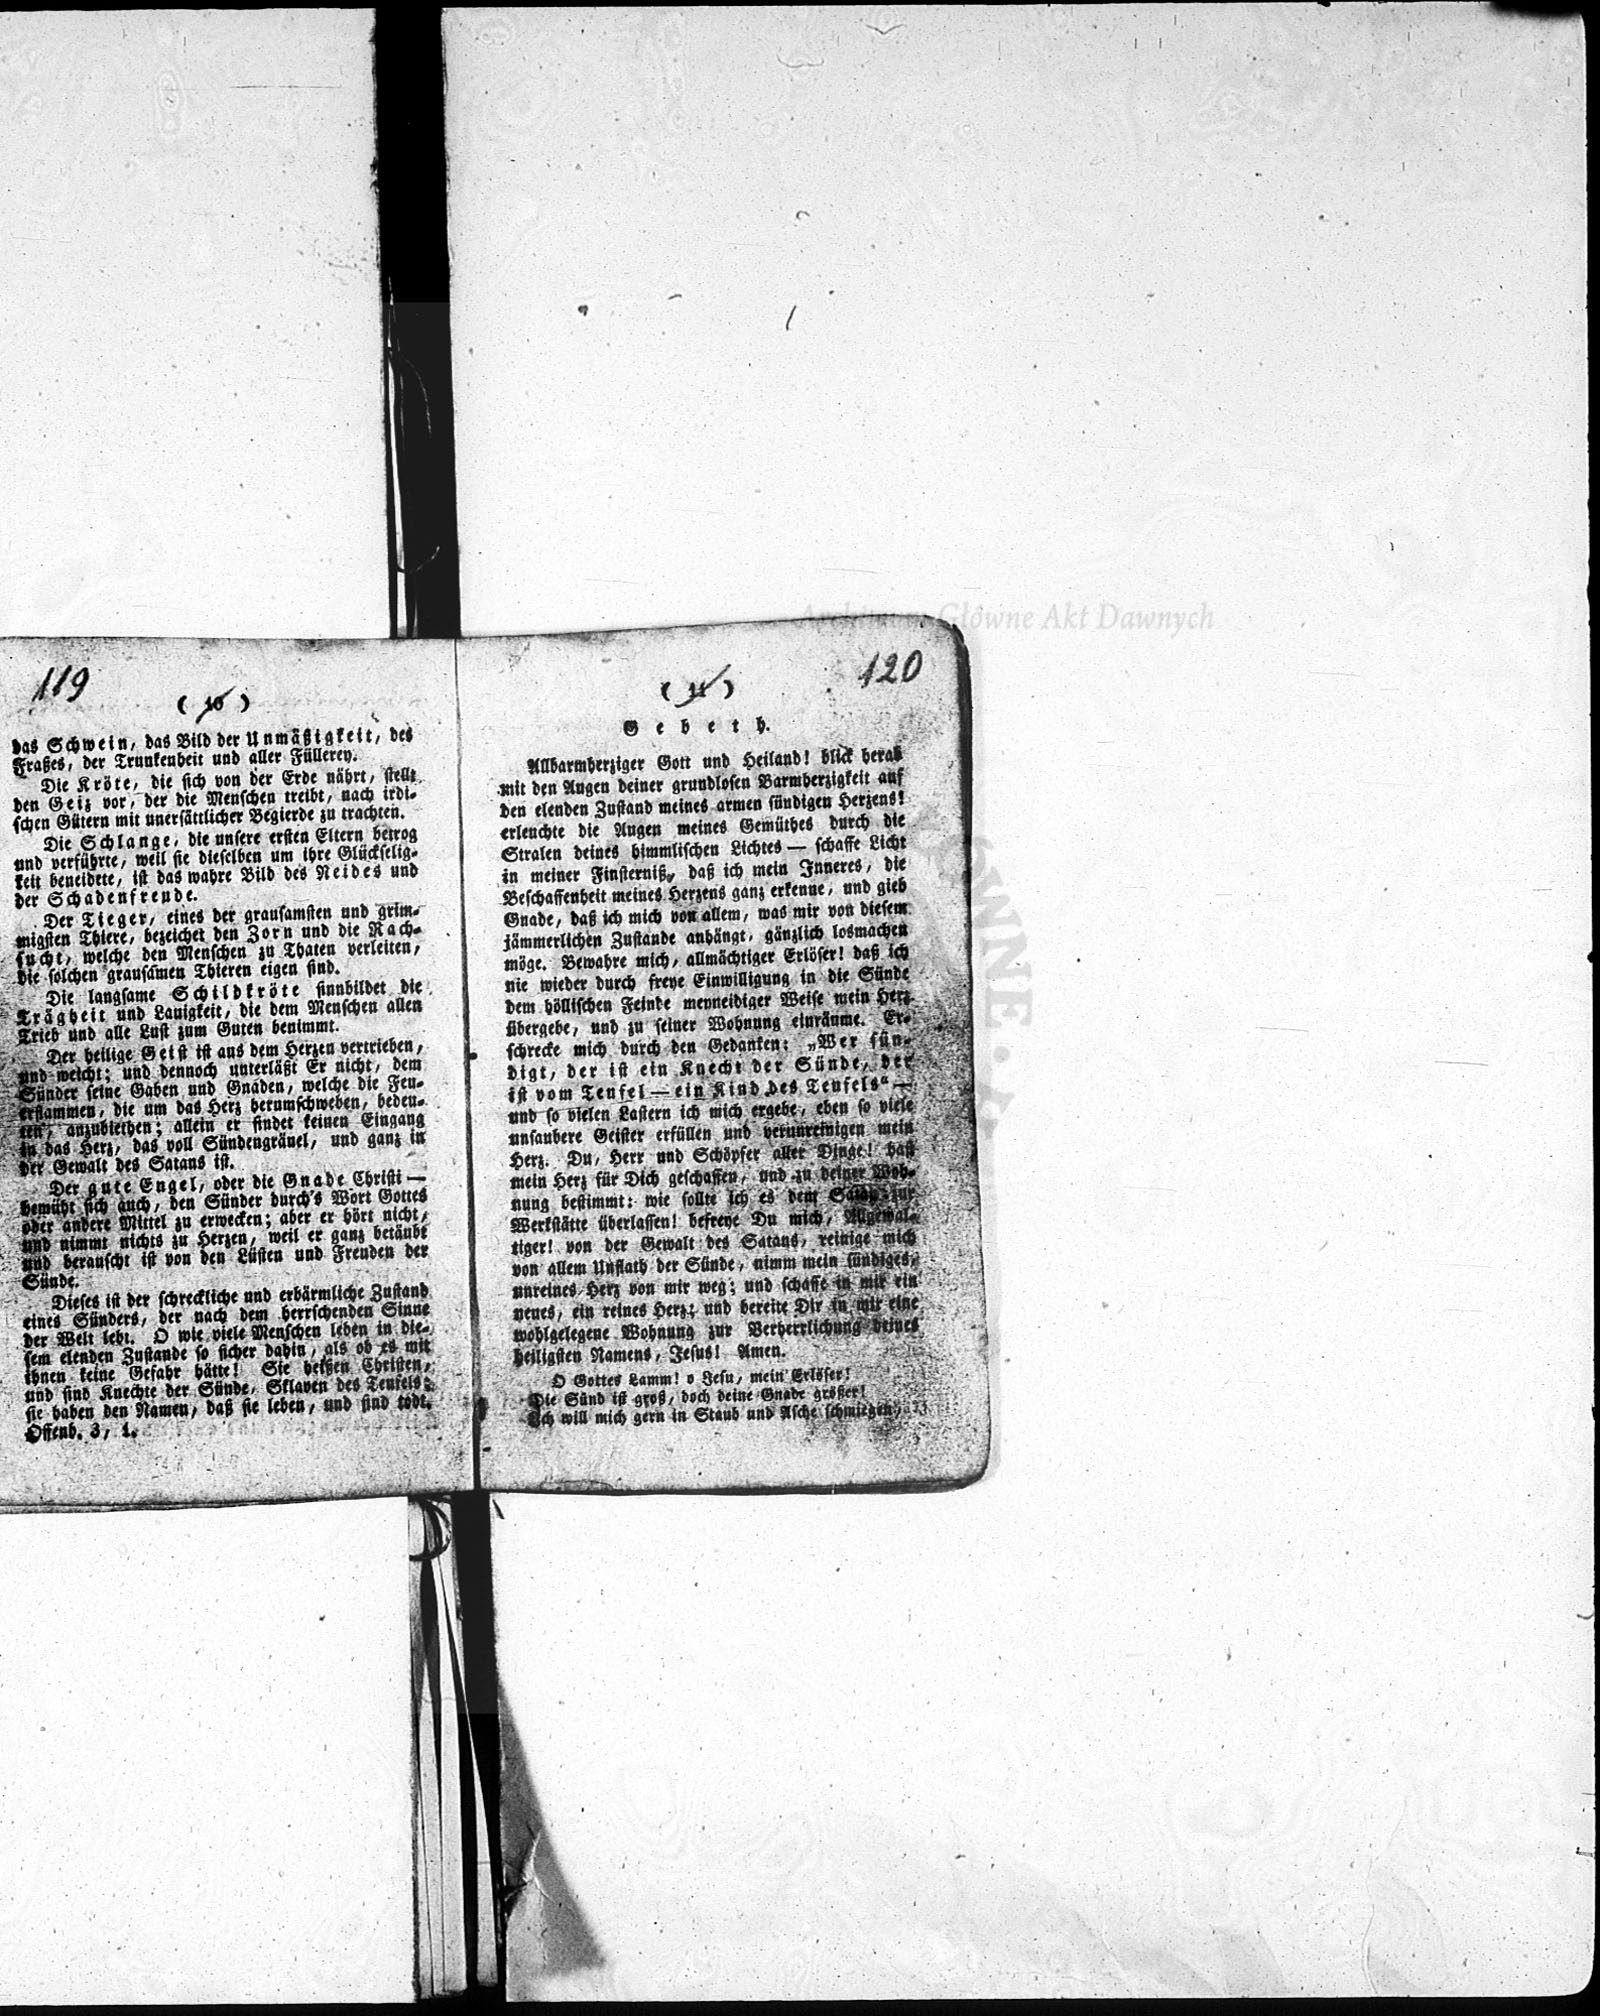 119
( 10 )
das Schwein, das Bild der Unmäßigkeit, des
Fraßes, der Trunkenheit und aller Füllerey.
Die Kröte, die sich von der Erde nährt, stellt
den Geiz vor, der die Menschen treibt, nach irdi-
schen Gütern mit unersättlicher Begierde zu trachten.
Die Schlange, die unsere ersten Eltern betrog
und verführte, weil sie dieselben um ihre Glückselig-
keit beneidete, ist das wahre Bild des Neides und
der Schadenfreude.
Der Tieger, eines der grausamsten und grim-
migsten Thiere, bezeichet den Zorn und die Rach-
sucht, welche den Menschen zu Thaten verleiten,
die solchen grausamen Thieren eigen sind.
Die langsame Schildkröte sinnbildet die
Trägheit und Lauigkeit, die dem Menschen allen
Trieb und alle Lust zum Guten benimmt.
Der heilige Geist ist aus dem Herzen vertrieben,
und weicht; und dennoch unterläßt Er nicht, dem
Sünder seine Gaben und Gnaden, welche die Feu-
erflammen, die um das Herz herumschweben, bedeu-
ten, anzubiethen; allein er findet keinen Eingang
in das Herz, das voll Sündengräuel, und ganz in
der Gewalt des Satans ist.
Der gute Engel, oder die Gnade Christi —
bemüht sich auch, den Sünder durch's Wort Gottes
oder andere Mittel zu erwecken; aber er hört nicht,
und nimmt nichts zu Herzen, weil er ganz betäubt
und berauscht ist von den Lüsten und Freuden der
Sünde.
Dieses ist der schreckliche und erbärmliche Zustand
eines Sünders, der nach dem herrschenden Sinne
der Welt lebt. O wie viele Menschen leben in die-
sem elenden Zustande so sicher dahin, als ob es mit
ihnen keine Gefahr hätte! Sie heißen Christen,
und sind Knechte der Sünde, Sklaven des Teufels:
sie haben den Namen, daß sie leben, und sind todt.
Offenb. 3, 1.
120
( 11 )
Gebeth.
Allbarmherziger Gott und Heiland! blick herab
mit den Augen deiner grundlosen Barmherzigkeit auf
den elenden Zustand meines armen sündigen Herzens!
erleuchte die Augen meines Gemüthes durch die
Stralen deines himmlischen Lichtes — schaffe Licht
in meiner Finsterniß, daß ich mein Inneres, die
Beschaffenheit meines Herzens ganz erkenne, und gieb
Gnade, daß ich mich von allem, was mir von diesem
jämmerlichen Zustande anhängt, gänzlich losmachen
möge. Bewahre mich, allmächtiger Erlöser! daß ich
nie wieder durch freye Einwilligung in die Sünde
dem höllischen Feinde meyneidiger Weise mein Herz
übergebe, und zu seiner Wohnung einräume. Er-
schrecke mich durch den Gedanken: „Wer sün-
digt, der ist ein Knecht der Sünde, der
ist vom Teufel — ein Kind des Teufels“ —
und so vielen Lastern ich mich ergebe, eben so viele
unsaubere Geister erfüllen und verunreinigen mein
Herz. Du, Herr und Schöpfer aller Dinge! hast
mein Herz für Dich geschaffen, und zu deiner Woh-
nung bestimmt: wie sollte ich es dem Satan zur
Werkstätte überlassen! befreye Du mich, Allgewal-
tiger! von der Gewalt des Satans, reinige mich
von allem Unflath der Sünde, nimm mein sündiges,
unreines Herz von mir weg; und schaffe in mir ein
neues, ein reines Herz; und bereite Dir in mir eine
wohlgelegene Wohnung zur Verherrlichung deines
heiligsten Namens, Jesus! Amen.
O Gottes Lamm! o Jesu, mein Erlöser!
Die Sünd ist groß, doch deine Gnade größer!
Ich will mich gern in Staub und Asche schmiegen,
Archiwum Główne Akt Dawnych